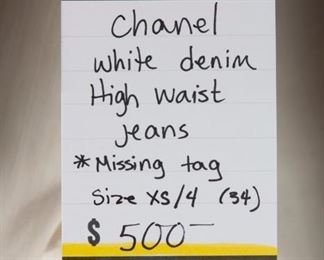 Chanel
white denim
High waist
jeans
*Missing tag
Size XS/4 (34)
$ 500—